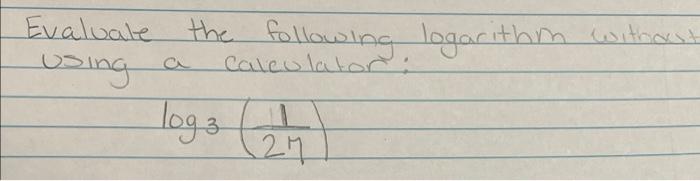 Evaluate the following logarithm without
using a calculator:
log₃ (1/27)